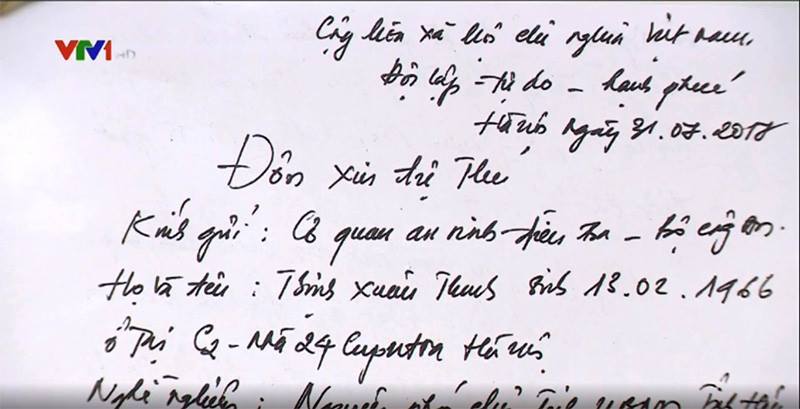 VTV1
Cộng hòa xã hội chủ nghĩa Việt nam
Độc lập - tự do - hạnh phúc
Hà nội ngày 31.07.2017
Đơn xin tự Thú
Kính gửi : Cơ quan an ninh điều tra - Bộ công an.
Họ và tên : Trịnh Xuân Thanh sinh 13.02.1966
ở Tại C2 - Nhà 24 Hà nội
Nghề nghiệp : Nguyên phó chủ Tịch